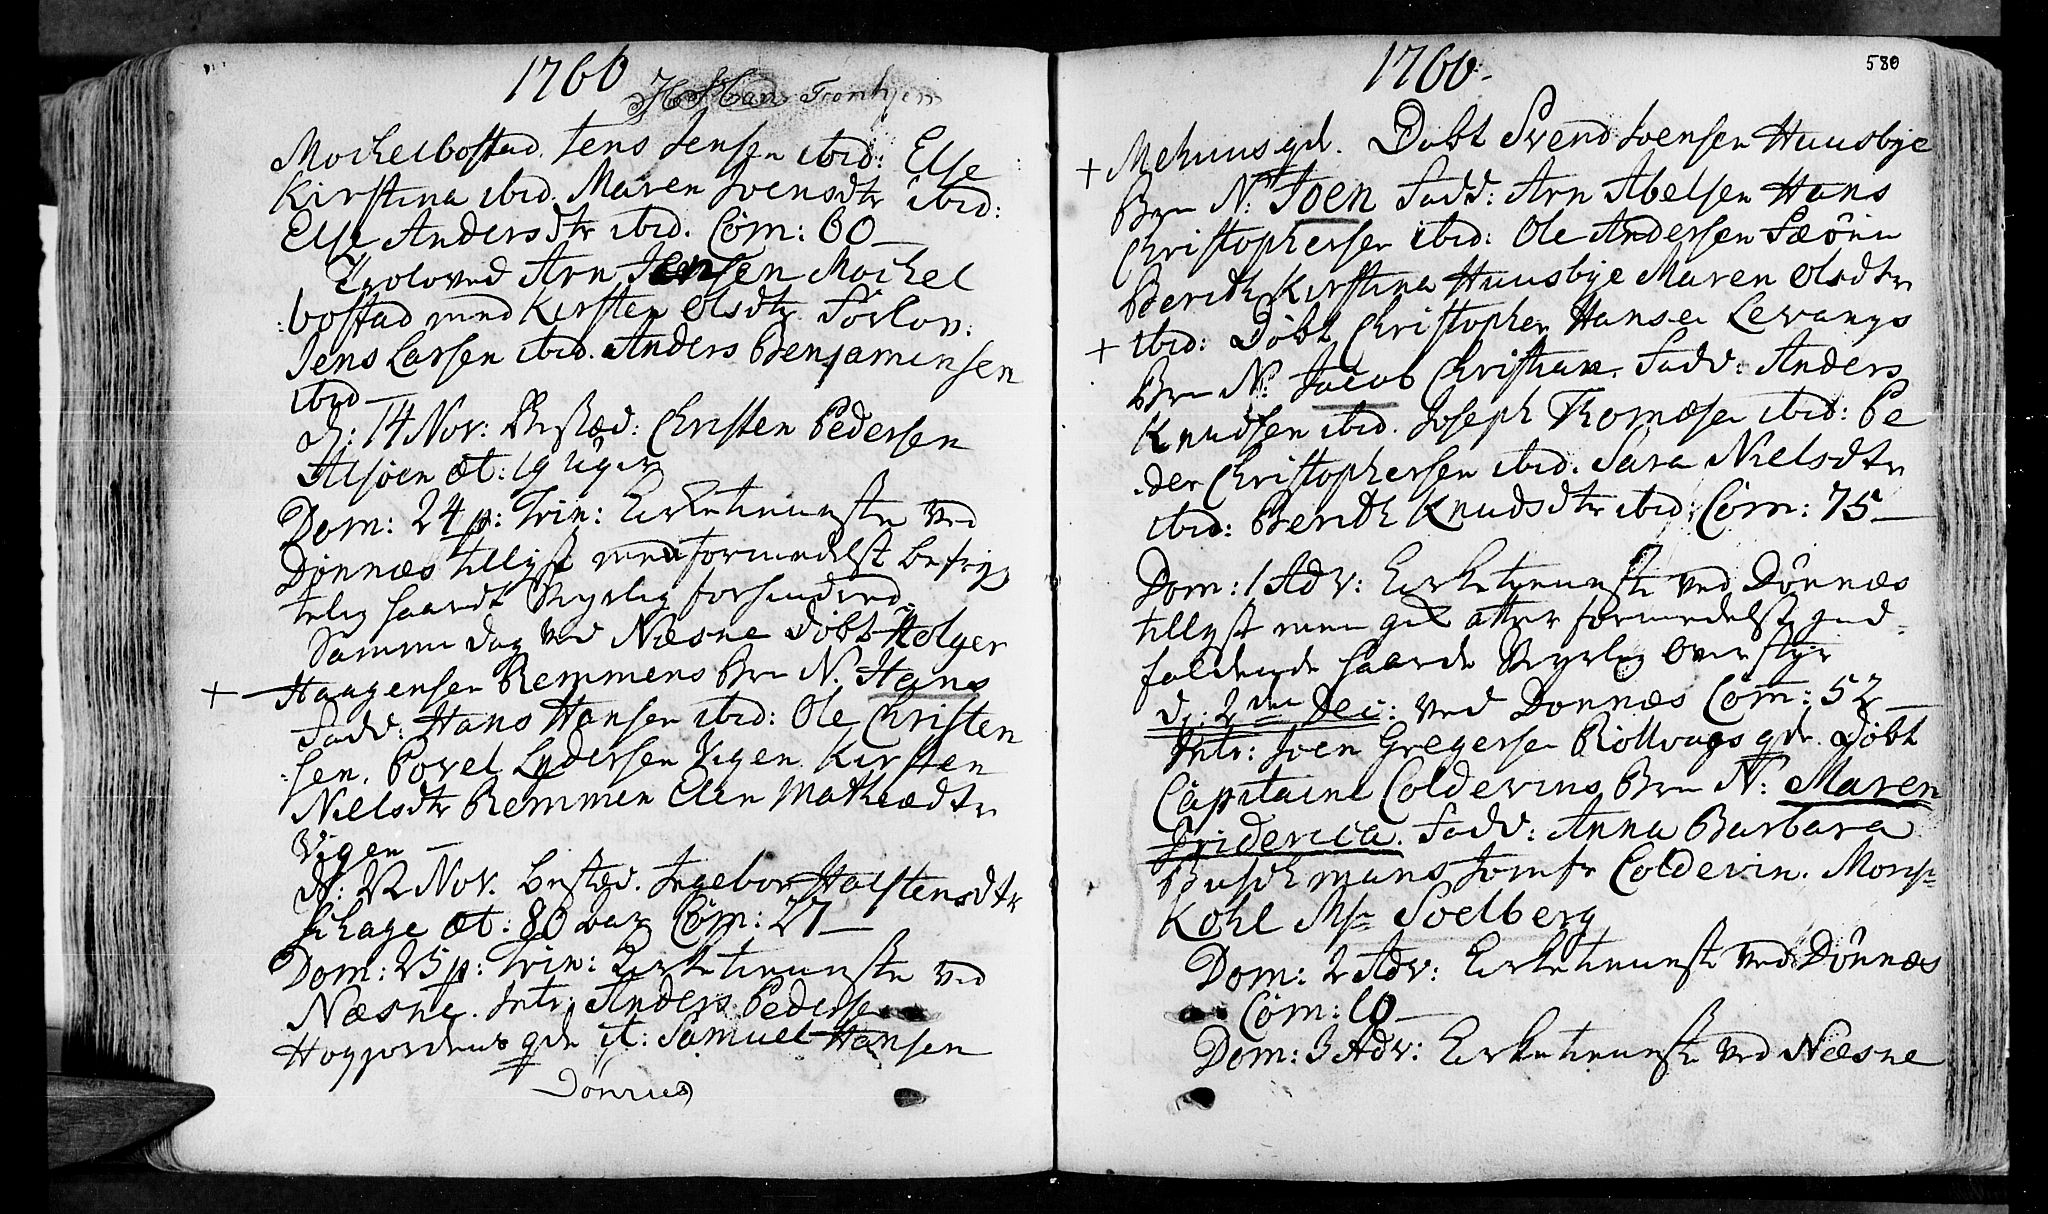 1766
H Hans Tromhjem
Mochelbostad. Jens Jensen ibid: Else
Kirstina ibid. Maren Svensdtr ibid:
Else Andersdtr ibid. Com: 60
Troloved Arn Jensen Mochel
bostad med Kirsten Olsdtr Forlov:
Jens Larsen ibid. Anders Benjaminsen
ibid
d: 14 Nov: Bested: Christen Pedersen
Alsøen æt: 19 Uger
Dom: 24 p: Trin: Kirketieniste ved
Dønnæs tillyst men formedelst befryg
telig haardt Veyrlig forhindred
Samme dag ved Næsne Døbt Holger
+ Haagensen Remmens Brn N. Hans
Fadd: Hans Hansen ibid: Ole Christen
sen. Povel Lydersen Vigen. Kirsten
Nielsdtr Remmen Elen Mathiædtr
Vigen
d: 22 Nov. Bested. Ingebor Halstensdtr
Schage æt: 80 Com: 27
Dom: 25 p: Trin: Kirketieniste ved
Næsne. Intr: Anders Pedersen
Hogjordens qde it: Samuel Hansen
Dønnes
1766
580
+ Mehuus qde. Døbt Svend Joensen Huusbye
Brn N: Joen Fadd: Arn Abelsen Hans
Christophersen ibid: Ole Andersen
Berith Kirstina Huusbye Maren Olsdtr
+ ibid: Døbt Christopher Hansen Levangs
Brn N: Jacob Christian. Fadd: Anders
Knudsen ibid. Joseph Thomæsen ibid: Pe
der Christophersen ibid. Sara Nielsdtr
ibid: Berith Knudsdtr ibid: Com: 75
Dom: 1 Adv: Kirketieniste ved Dønnæs
tillyst men gik atter formedelst ind-
faldende haarde Veyrlig Over styr
d: 2den Dec: ved Dønnæs Com: 52
Intr: Joen Gregersen Röllvags qde. Döbt
Capitaine Coldevins Brn N: Maren
Friderica. Fadd: Anna Barbara
Buschmans Jomfr Coldevin. Monsr
Kohl Msr Soelberg
Dom: 2 Adv: Kirketieniste ved Dønnæs
Com: 10
Dom: 3 Adv: Kirketieniste ved Næsne